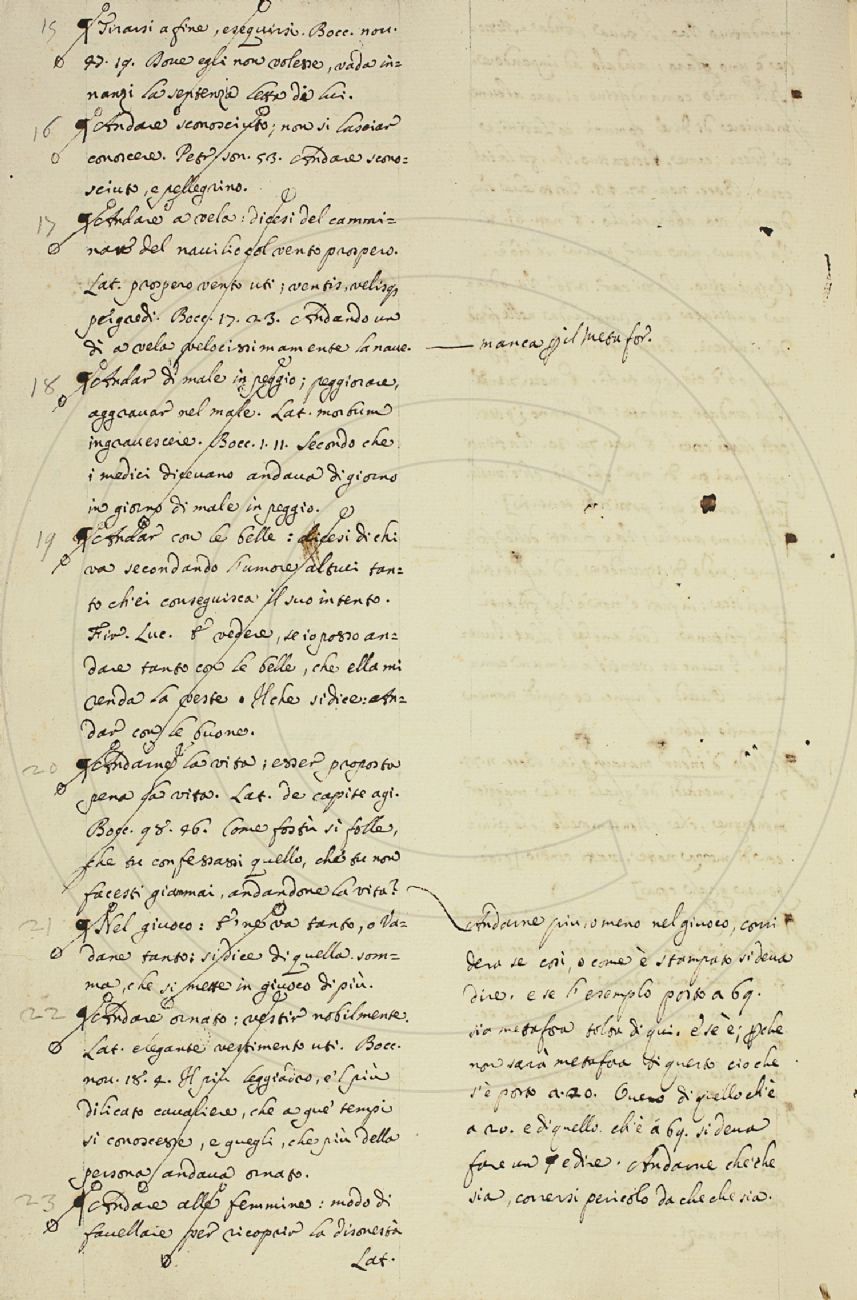 15 ¶ Tirarsi a fine, eseguirsi. Bocc. nov.
47. 19. Dove egli non volesse, vada in=
nanzi la sentenzia letta di lui.
16 ¶ Andare sconosciuto; non si lasciar
conoscere. Petr. son. 53. Andare scono=
sciuto, e pellegrino.
17 ¶ Andare a vela: dicesi del cammi=
nare del navilio col vento prospero.
Lat. prospero vento uti; ventis, velisq;
Bocc. 17. 23. Andando un
dì a vela velocissimamente la nave.
manca il Metafor.
18 ¶ Andar di male in peggio; peggiorare,
aggravar nel male. Lat. morbum
ingravescere. Bocc. 1. 11. Secondo che
i medici dicevano andava di giorno
in giorno di male in peggio.
19 ¶ Andar con le belle: dicesi di chi
va secondando l'umore altrui tan=
to ch'ei conseguisca il suo intento.
Fir. Luc. vedere, se io posso an=
dare tanto con le belle, che ella mi
renda la veste. Il che si dice: An=
dar con le buone.
20 ¶ Andarne la vita; esser proposta
pena la vita. Lat. de capite agi.
Bocc. 98. 46. Come fostù sì folle,
che tu confessassi quello, che tu non
facesti giammai, andandone la vita?
21 ¶ Nel giuoco: E' ne va tanto, o Va=
dane tanto: si dice di quella som=
ma, che si mette in giuoco di più.
22 ¶ Andare ornato: vestir nobilmente.
Lat. elegante vestimento uti. Bocc.
nov. 18. 4. Il più leggiadro, e 'l più
dilicato cavaliere, che a que' tempi
si conoscesse, e quegli, che più della
persona andava ornato.
23 ¶ Andare alle femmine: modo di
favellare per ricoprir la disonestà
Lat.
Andarne più, o meno nel giuoco, consi
dera se così, o come è stampato si deva
dire. e se l'esemplo posto a 69.
sia metafora tolta di qui. e se è; perche
non sarà metafora di questo cio che
s'è posto a 20. Overo di quello ch'è
a 20. e di quello ch'è a 69. si deva
fare un ¶ e dire. Andarne cheche
sia, corrersi pericolo da che che sia.